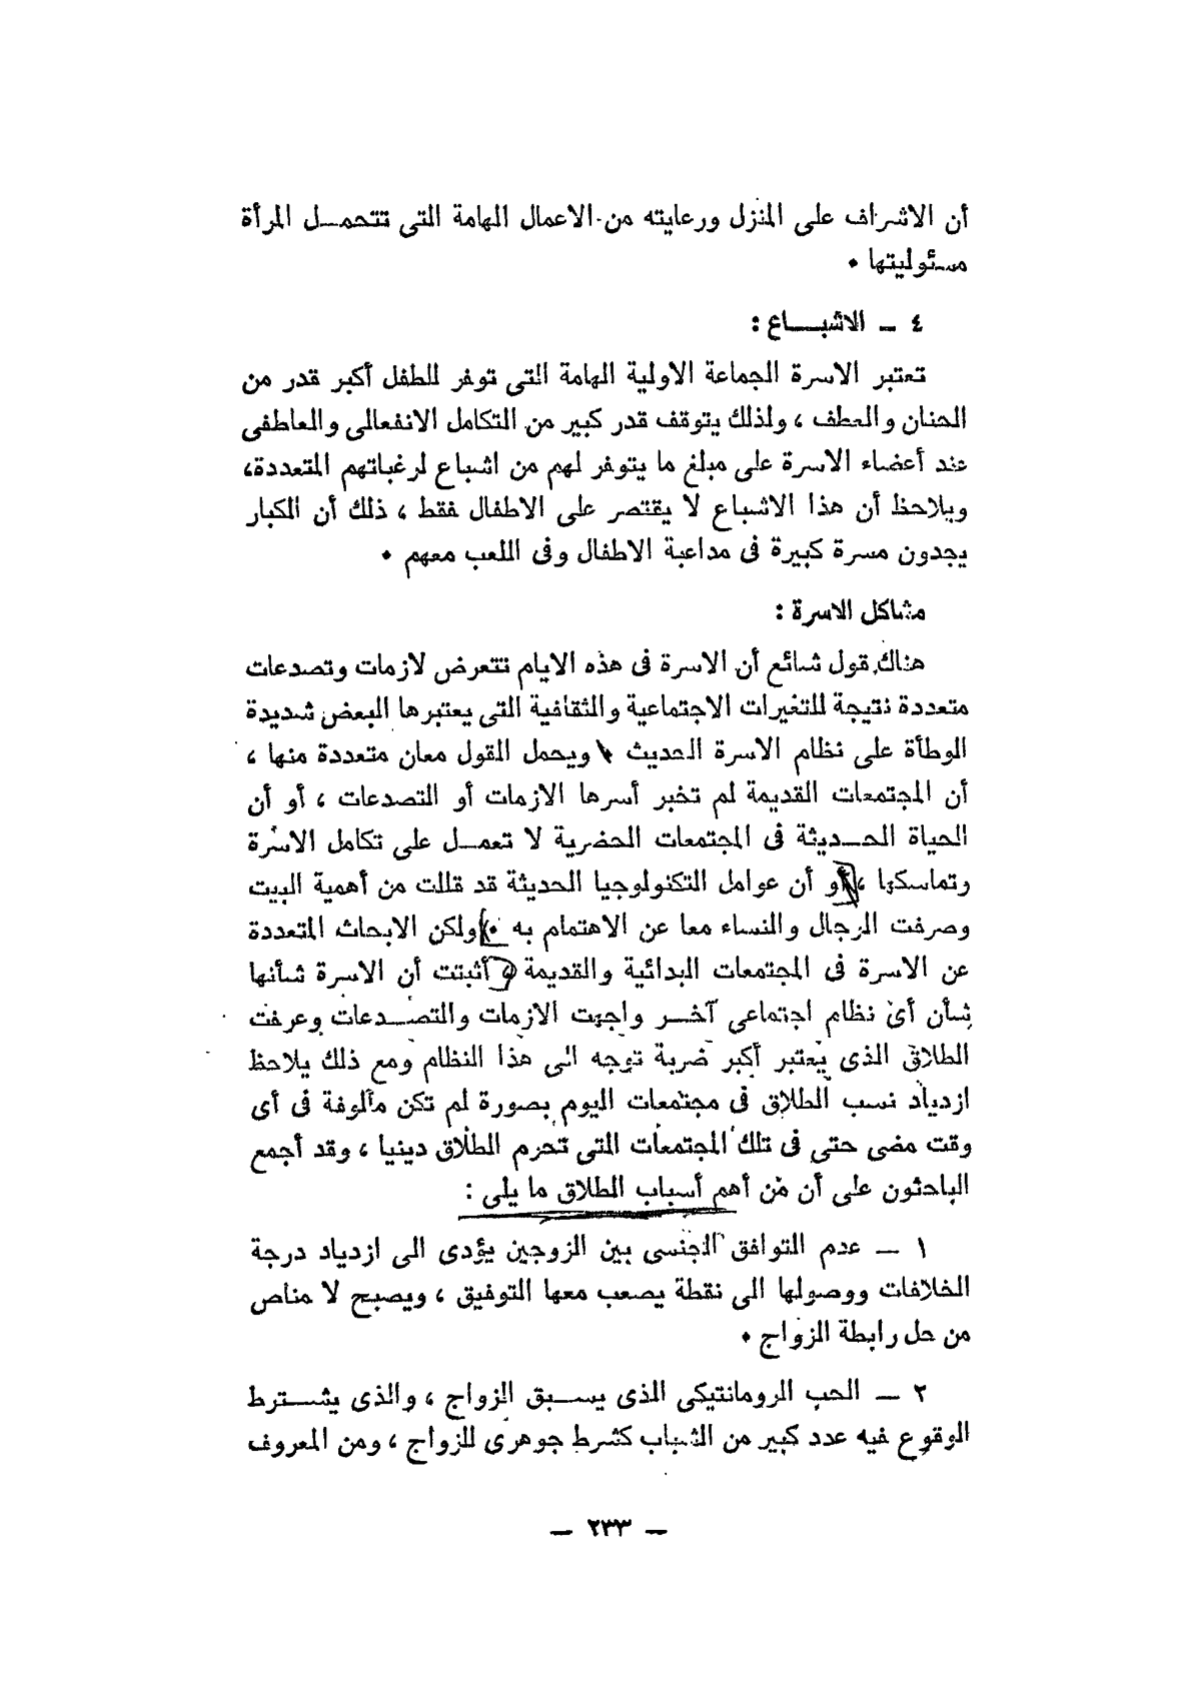 أن الاشراف على المنزل ورعايته من الاعمال الهامة التى تتحمـل المرأة
مسئوليتها •
٤ ـ الاشبـــاع :
تعتبر الاسرة الجماعة الاولية الهامة التى توفر للطفل أكبر قدر من
الحنان والعطف ، ولذلك يتوقف قدر كبير من التكامل الانفعالى والعاطفى
عند أعضاء الاسرة على مبلغ ما يتوفر لهم من اشباع لرغباتهم المتعددة،
ويلاحظ أن هذا الاشباع لا يقتصر على الاطفال فقط ، ذلك أن الكبار
يجدون مسرة كبيرة فى مداعبة الاطفال وفى اللعب معهم •
مشاكل الاسرة :
هناك قول شائع أن الاسرة فى هذه الايام تتعرض لازمات وتصدعات
متعددة نتيجة للتغيرات الاجتماعية والثقافية التى يعتبرها البعض شديدة
الوطأة على نظام الاسرة الحديث ، ويحمل القول معان متعددة منها ،
أن المجتمعات القديمة لم تخبر أسرها الازمات أو التصدعات ، أو أن
الحياة الحـديثة فى المجتمعات الحضرية لا تعمـل على تكامل الاسرة
وتماسكها ، أو أن عوامل التكنولوجيا الحديثة قد قللت من أهمية البيت
وصرفت الرجال والنساء معا عن الاهتمام به • ولكن الابحاث المتعددة
عن الاسرة فى المجتمعات البدائية والقديمة و أثبتت أن الاسرة شأنها
شأن أى نظام اجتماعى آخـر واجهت الازمات والتصـدعات وعرفت
الطلاق الذى يعتبر أكبر ضربة توجه الى هذا النظام ومع ذلك يلاحظ
ازدياد نسب الطلاق فى مجتمعات اليوم بصورة لم تكن مألوفة فى أى
وقت مضى حتى فى تلك المجتمعات التى تحرم الطلاق دينيا ، وقد أجمع
الباحثون على أن من أهم أسباب الطلاق ما يلى :
١ ـ عدم التوافق الجنسى بين الزوجين يؤدى الى ازدياد درجة
الخلافات ووصولها الى نقطة يصعب معها التوفيق ، ويصبح لا مناص
من حل رابطة الزواج •
٢ ـ الحب الرومانتيكى الذى يسـبق الزواج ، والذى يشـترط
الوقوع فيه عدد كبير من الشباب كشرط جوهرى للزواج ، ومن المعروف
ـ ٢٣٣ ـ